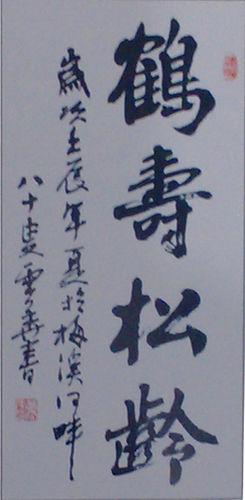 鶴壽松齡
歲次壬辰年夏於梅溪河畔
八十叟雲岳書